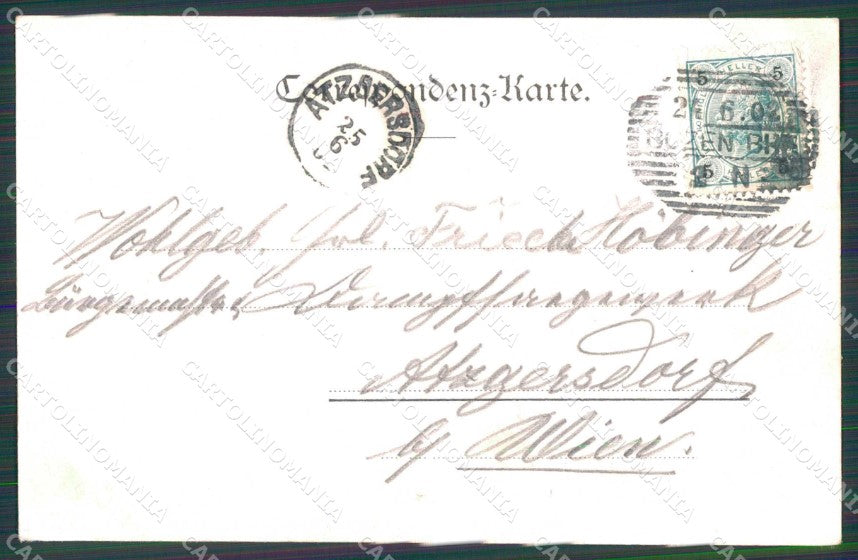 Correspondenz-Karte.
ATZGERSDORF
25
6
5 ELLER 5
2 6.02
BOZEN BHF
5 N 5
Wohlgeb. Frl. Friech Höbinger
Bürgermeisters Dampfsaegewerk
Atzgersdorf
b/ Wien.
CARTOLINOMANIA